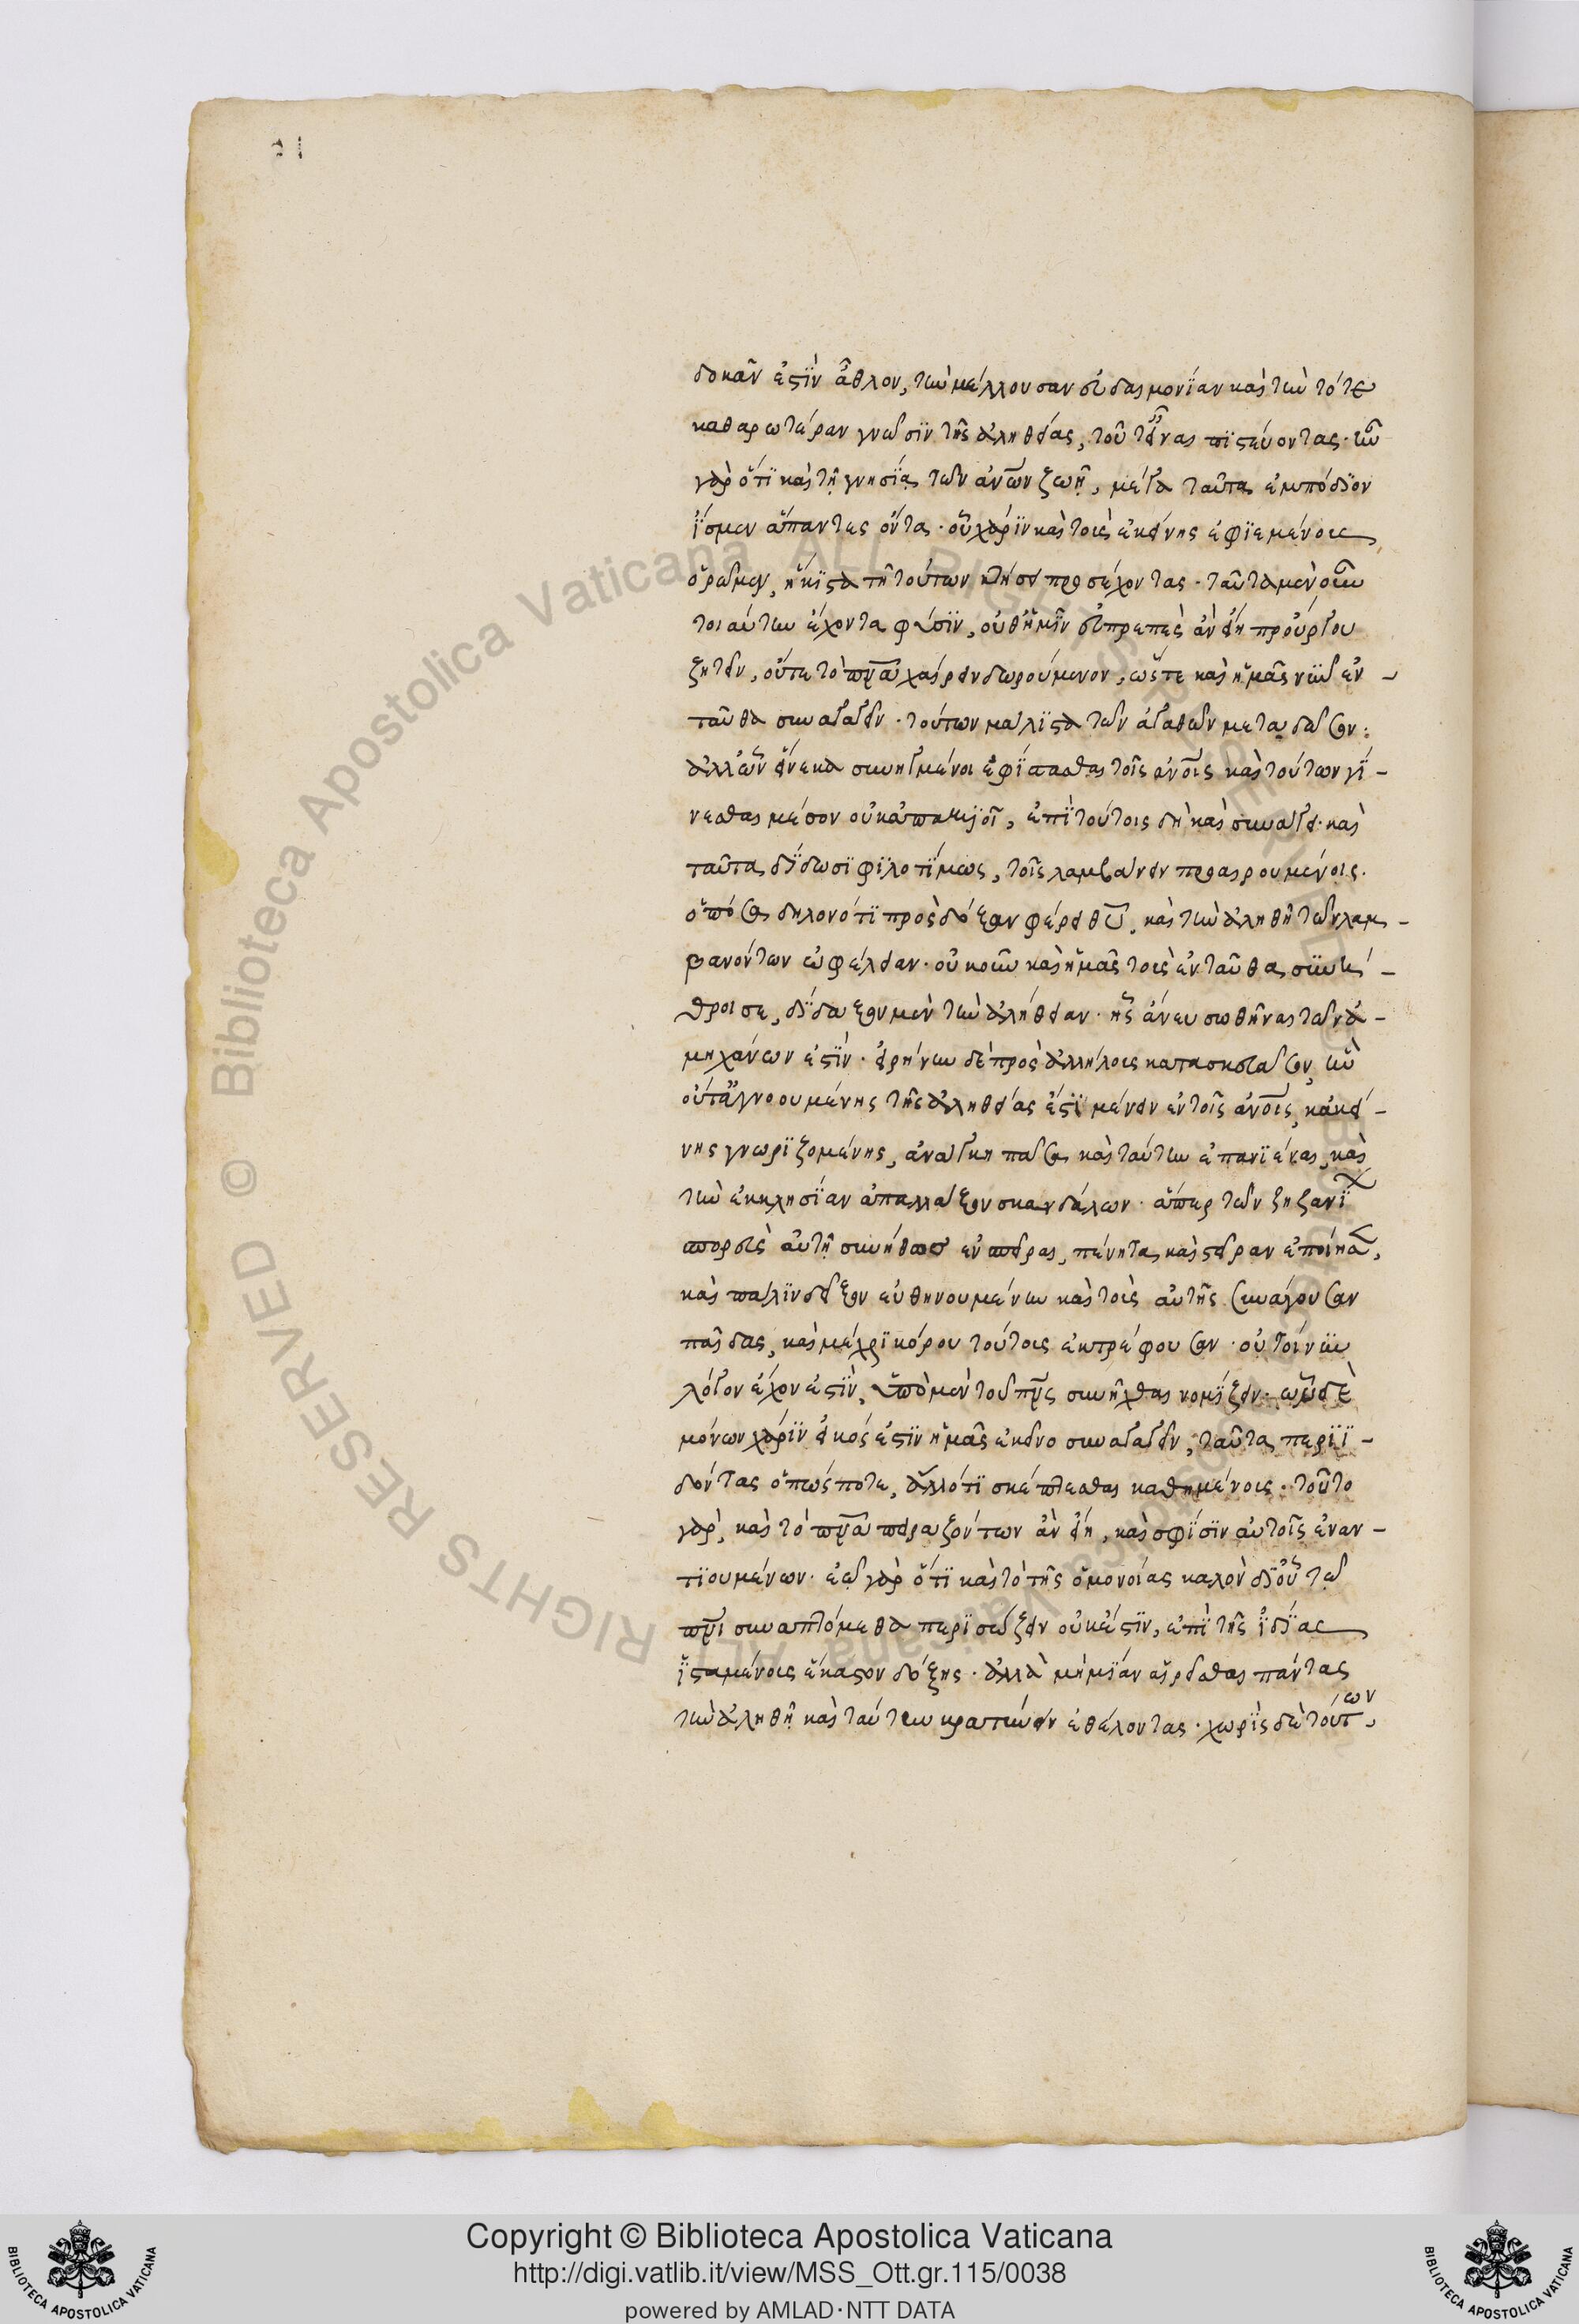 δοκᾶν ἐστὶν ἆθλον, τὴν μέλλουσαν εὐδαιμονίαν καὶ τὴν τότε
καθαρωτέραν γνῶσιν τῆς ἀληθείας, τοῦ πιστεύοντας.
γὰρ ὅτι καὶ τῇ γνησίᾳ τῶν ἀνων ζωῇ, μετὰ ταῦτα ἐμπόδιον
ἴσμεν ἅπαντες ὄντα. οὗ χάριν καὶ τοὺς ἐκείνης ἐφιεμένους
ὁρῶμεν, ἥκιστα τῇ τούτων κτήσει προσέχοντας. ταῦτα μὲν οὖν
τοιαύτην ἔχοντα φύσιν, οὐθ ἡμῖν εὐπρεπὲς ἂν εἴη προύργου
ζητεῖν, οὔτε τὸ πνα χαίρειν δωρούμενον, ὥστε καὶ ἡμᾶς νῦν ἐν -
ταῦθα συναγαγεῖν. τούτων μάλιστα τῶν ἀγαθῶν μεταδῶσον:
ἀλλ ὧν εἵνεκα συνηγμένοι ἐφίπτασθαι τοῖς ἀνοις καὶ τούτων γί -
νεσθαι μέσον οὐκ ἀπαξιοῖ, ἐπὶ τούτοις δὴ καὶ συνάγει. καὶ
ταῦτα δίδωσι φιλοτίμως, τοῖς λαμβάνειν προαιρουμένοις.
ὁπόσα δηλονότι πρὸς δόξαν φέρει θυ, καὶ τὴν ἀληθῆ τῶν λαμ -
βανόντων ὠφέλειαν. οὐκοῦν καὶ ἡμᾶς τοὺς ἐνταῦθα συνή -
θροισε, διδάξον μὲν τὴν ἀλήθειαν. ἧς ἄνευ σωθῆναι τῶν ἀ -
μηχάνων ἐστίν. εἰρήνην δὲ πρὸς ἀλλήλους κατασκευάσον, ἣν
οὔτ ἀγνοουμένης τῆς ἀληθείας ἔστι μένειν ἐν τοῖς ἀνοις, κἀκεί -
νης γνωριζομένης, ἀνάγκη πᾶσα καὶ ταύτην ἐπανιέναι, καὶ
τὴν ἐκκλησίαν ἀπαλλάξον σκανδάλων. ἅπερ τῶν ζηζανί
σπορεὺς αὐτῇ συνήθως ἐνσπείρας, πένητα καὶ στεῖραν ἐποίησε,
καὶ πάλιν δεῖξον εὐθηνουμένην καὶ τοὺς αὐτῆς συνάγουσαν
παῖδας, καὶ μέχρι κόρου τούτους ἐκτρέφουσαν. οὐ τοίνυν
λόγον ἔχον ἐστὶν, ὑπὸ μὲν τοῦ πνς συνῆχθαι νομίζειν. ὧν δὲ
μόνων χάριν εἰκός ἐστιν ἡμᾶς ἐκεῖνο συναγαγεῖν, ταῦτα περιϊ -
δόντας ὅπως ποτε, ἄλλό τι σκέπτεσθαι καθημένους. τοῦτο
γὰρ, καὶ τὸ πνα πειραζόντων ἂν εἴη, καὶ σφίσιν αὐτοῖς ἐναν -
τιουμένων. ἐῶ γὰρ ὅτι καὶ τὸ τῆς ὁμονοίας καλὸν δι οὗ τῷ
πνι συναπτόμεθα περισώζειν οὐκ ἔστιν, ἐπὶ τῆς ἰδίας
ἱσταμένους ἕκαστον δόξης. ἀλλὰ μὴ μίαν αἱρεῖσθαι πάντας
τὴν ἀληθῆ καὶ ταύτην κρατύνειν ἐθέλοντας. χωρὶς δὲ τούτων,
Copyright © Biblioteca Apostolica Vaticana
http://digi.vatlib.it/view/MSS_Ott.gr.115/0038
powered by AMLAD·NTT DATA
BIBLIOTECA APOSTOLICA VATICANA
BIBLIOTECA APOSTOLICA VATICANA